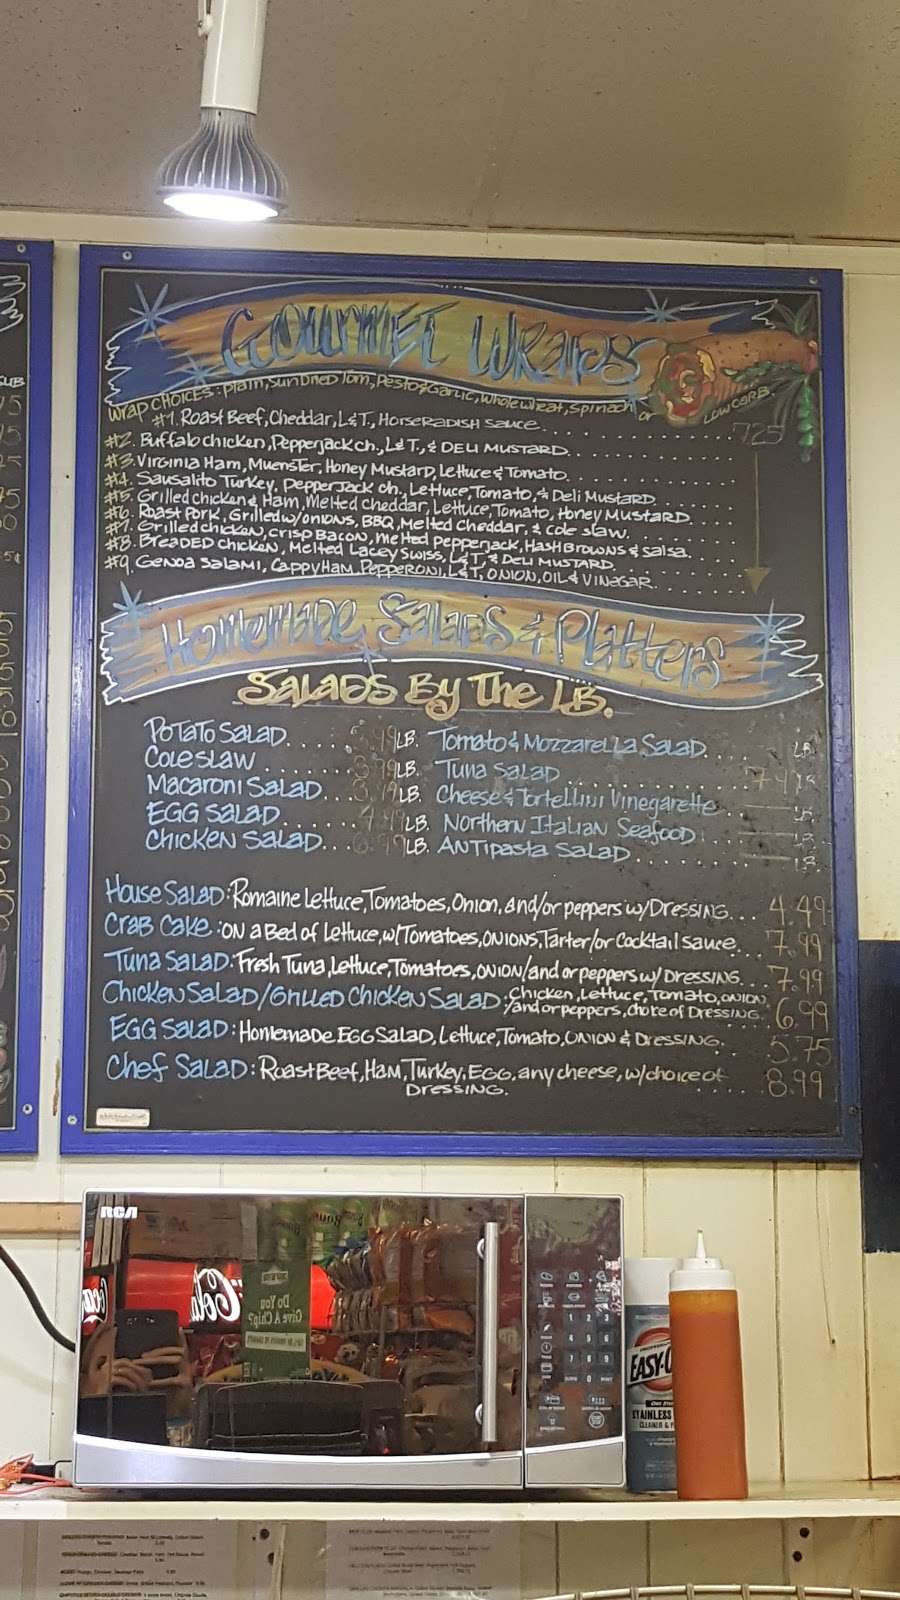 Gourmet Wraps
Wrap Choices: Plain, Sun Dried Tom, Pesto & Garlic, Whole Wheat, Spinach or Low Carb.
#1. Roast Beef, Cheddar, L&T., Horseradish Sauce 7.25
#2. Buffalo Chicken, Pepperjack Ch., L&T., & Deli Mustard
#3. Virginia Ham, Muenster, Honey Mustard, Lettuce & Tomato
#4. Sausalito Turkey, Pepper Jack Ch., Lettuce, Tomato, & Deli Mustard
#5. Grilled Chicken & Ham, Melted Cheddar, Lettuce, Tomato, Honey Mustard
#6. Roast Pork, Grilled w/ Onions, BBQ, Melted Cheddar, & Cole Slaw.
#7. Grilled Chicken, Crisp Bacon, Melted Pepperjack, Hash Browns & Salsa.
#8. Breaded Chicken, Melted Lacey Swiss, L&T, & Deli Mustard
#9. Genoa Salami, Cappy Ham, Pepperoni, L&T, Onion, Oil & Vinegar
Homemade Salads & Platters
Salads By The LB.
Potato Salad LB. Tomato & Mozzarella Salad LB.
Cole Slaw LB. Tuna Salad
Macaroni Salad LB. Cheese & Tortellini Vinegarette
Egg Salad LB. Northern Italian Seafood
Chicken Salad LB. Antipasta Salad
House Salad: Romaine Lettuce, Tomatoes, Onion, and/or peppers w/ Dressing. 4.49
Crab Cake: on a Bed of Lettuce, w/ Tomatoes, Onions, Tarter/or Cocktail Sauce. 7.99
Tuna Salad: Fresh Tuna, Lettuce, Tomatoes, Onion/and or peppers w/ Dressing. 7.99
Chicken Salad/Grilled Chicken Salad: Chicken, Lettuce, Tomato, Onion,
/and or peppers, choice of Dressing. 6.99
Egg Salad: Homemade Egg Salad, Lettuce, Tomato, Onion & Dressing. 5.75
Chef Salad: Roast Beef, Ham, Turkey, Egg, any cheese, w/choice of 8.99
Dressing.
RCA
Do You
Give A Chip?
1 2 3
4 5 6
7 8 9
0
EASY-O
STAINLESS
CLEANER &